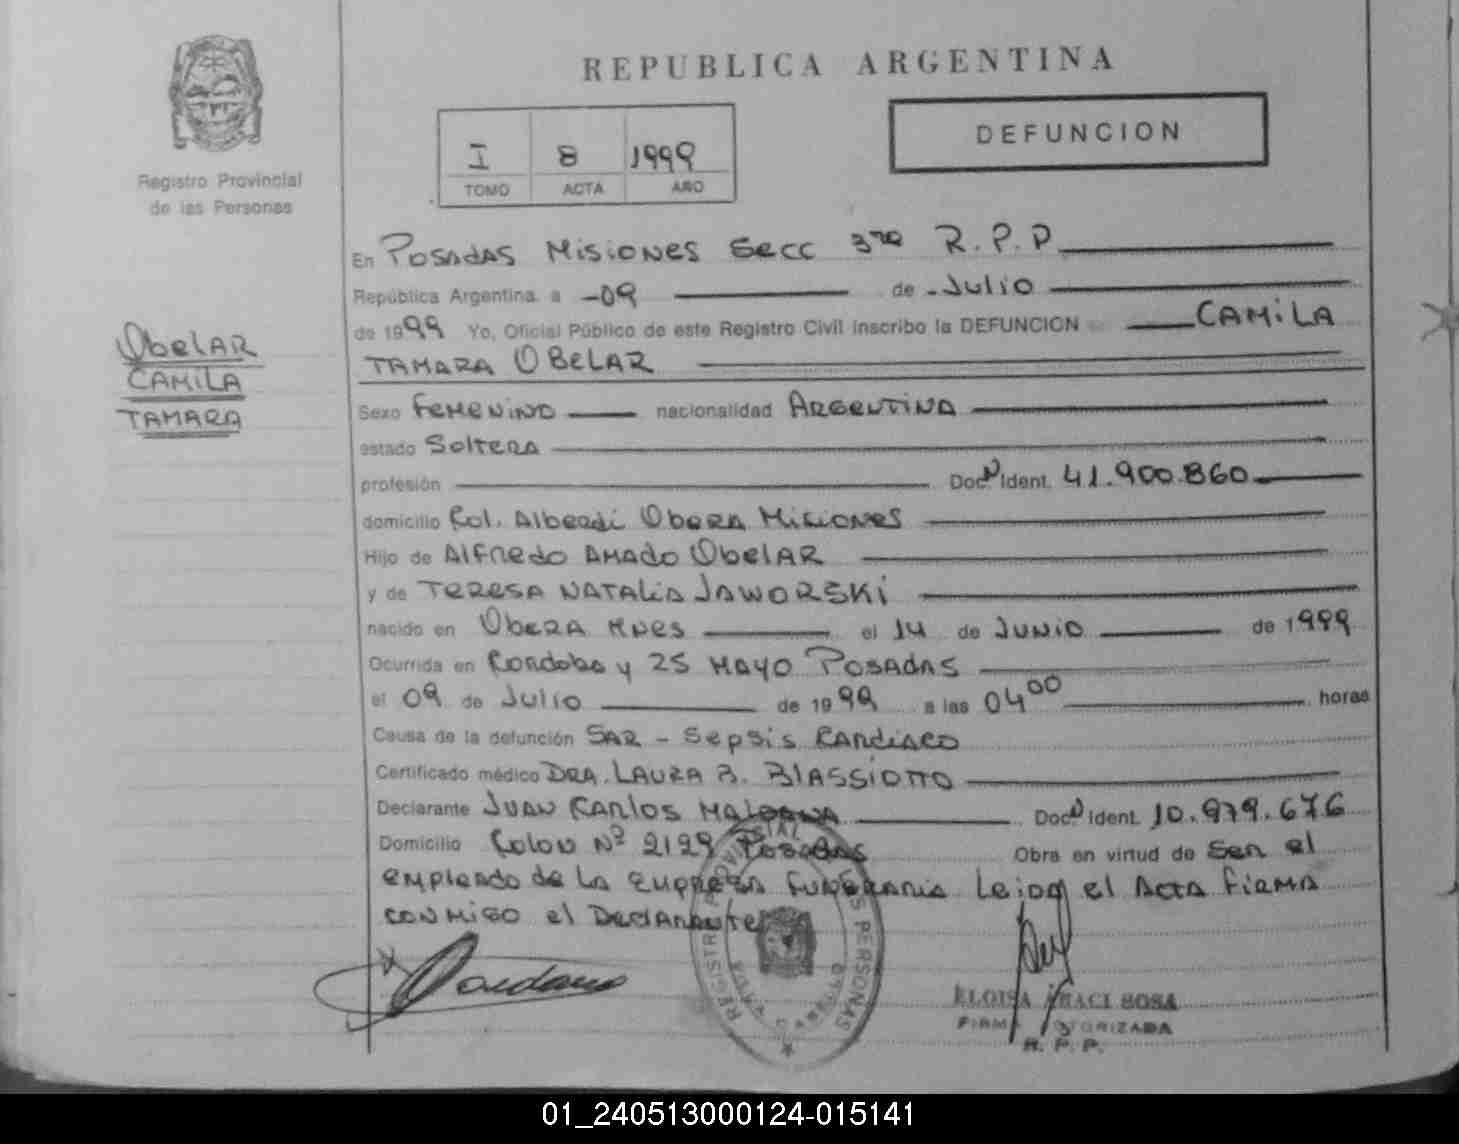 REPUBLICA ARGENTINA
I 8 1999
TOMO ACTA AÑO
DEFUNCION
Registro Provincial
de las Personas
ObelAR
CAMILA
TAMARA
En POSADAS MISIONES Secc 3ra R.P.P
República Argentina a -09 de Julio
de 1999 Yo, Oficial Público de este Registro Civil inscribo la DEFUNCION CAMILA
TAMARA OBELAR
Sexo FEMENINO nacionalidad ARGENTINA
estado SOLTERA
profesión Doc. Nº Ident. 41.900.860
domicilio Col. Alberdi Obera Misiones
Hijo de Alfredo AMADO ObelAR
y de TERESA NATALIA JAWORSKI
nacido en Obera Mnes el 14 de JUNIO de 1999
Ocurrida en Cordoba y 25 MAYO POSADAS
el 09 de Julio de 1999 a las 04 00 horas
Causa de la defunción SAR - Sepsis CARDIACO
Certificado médico DRA. LAURA B. BIASSIOTTO
Declarante JUAN CARLOS Doc. Nº Ident. 10.979.676
Domicilio Colon Nº 2129 POSADAS Obra en virtud de Ser el
empleado de la empresa FUNERARIA Leida el ACTA FIRMA
CONMIGO el Declarante
REGISTRO PROVINCIAL DE LAS PERSONAS
ELOISA SOSA
FIRMA AUTORIZADA
R. P. P.
01_240513000124-015141